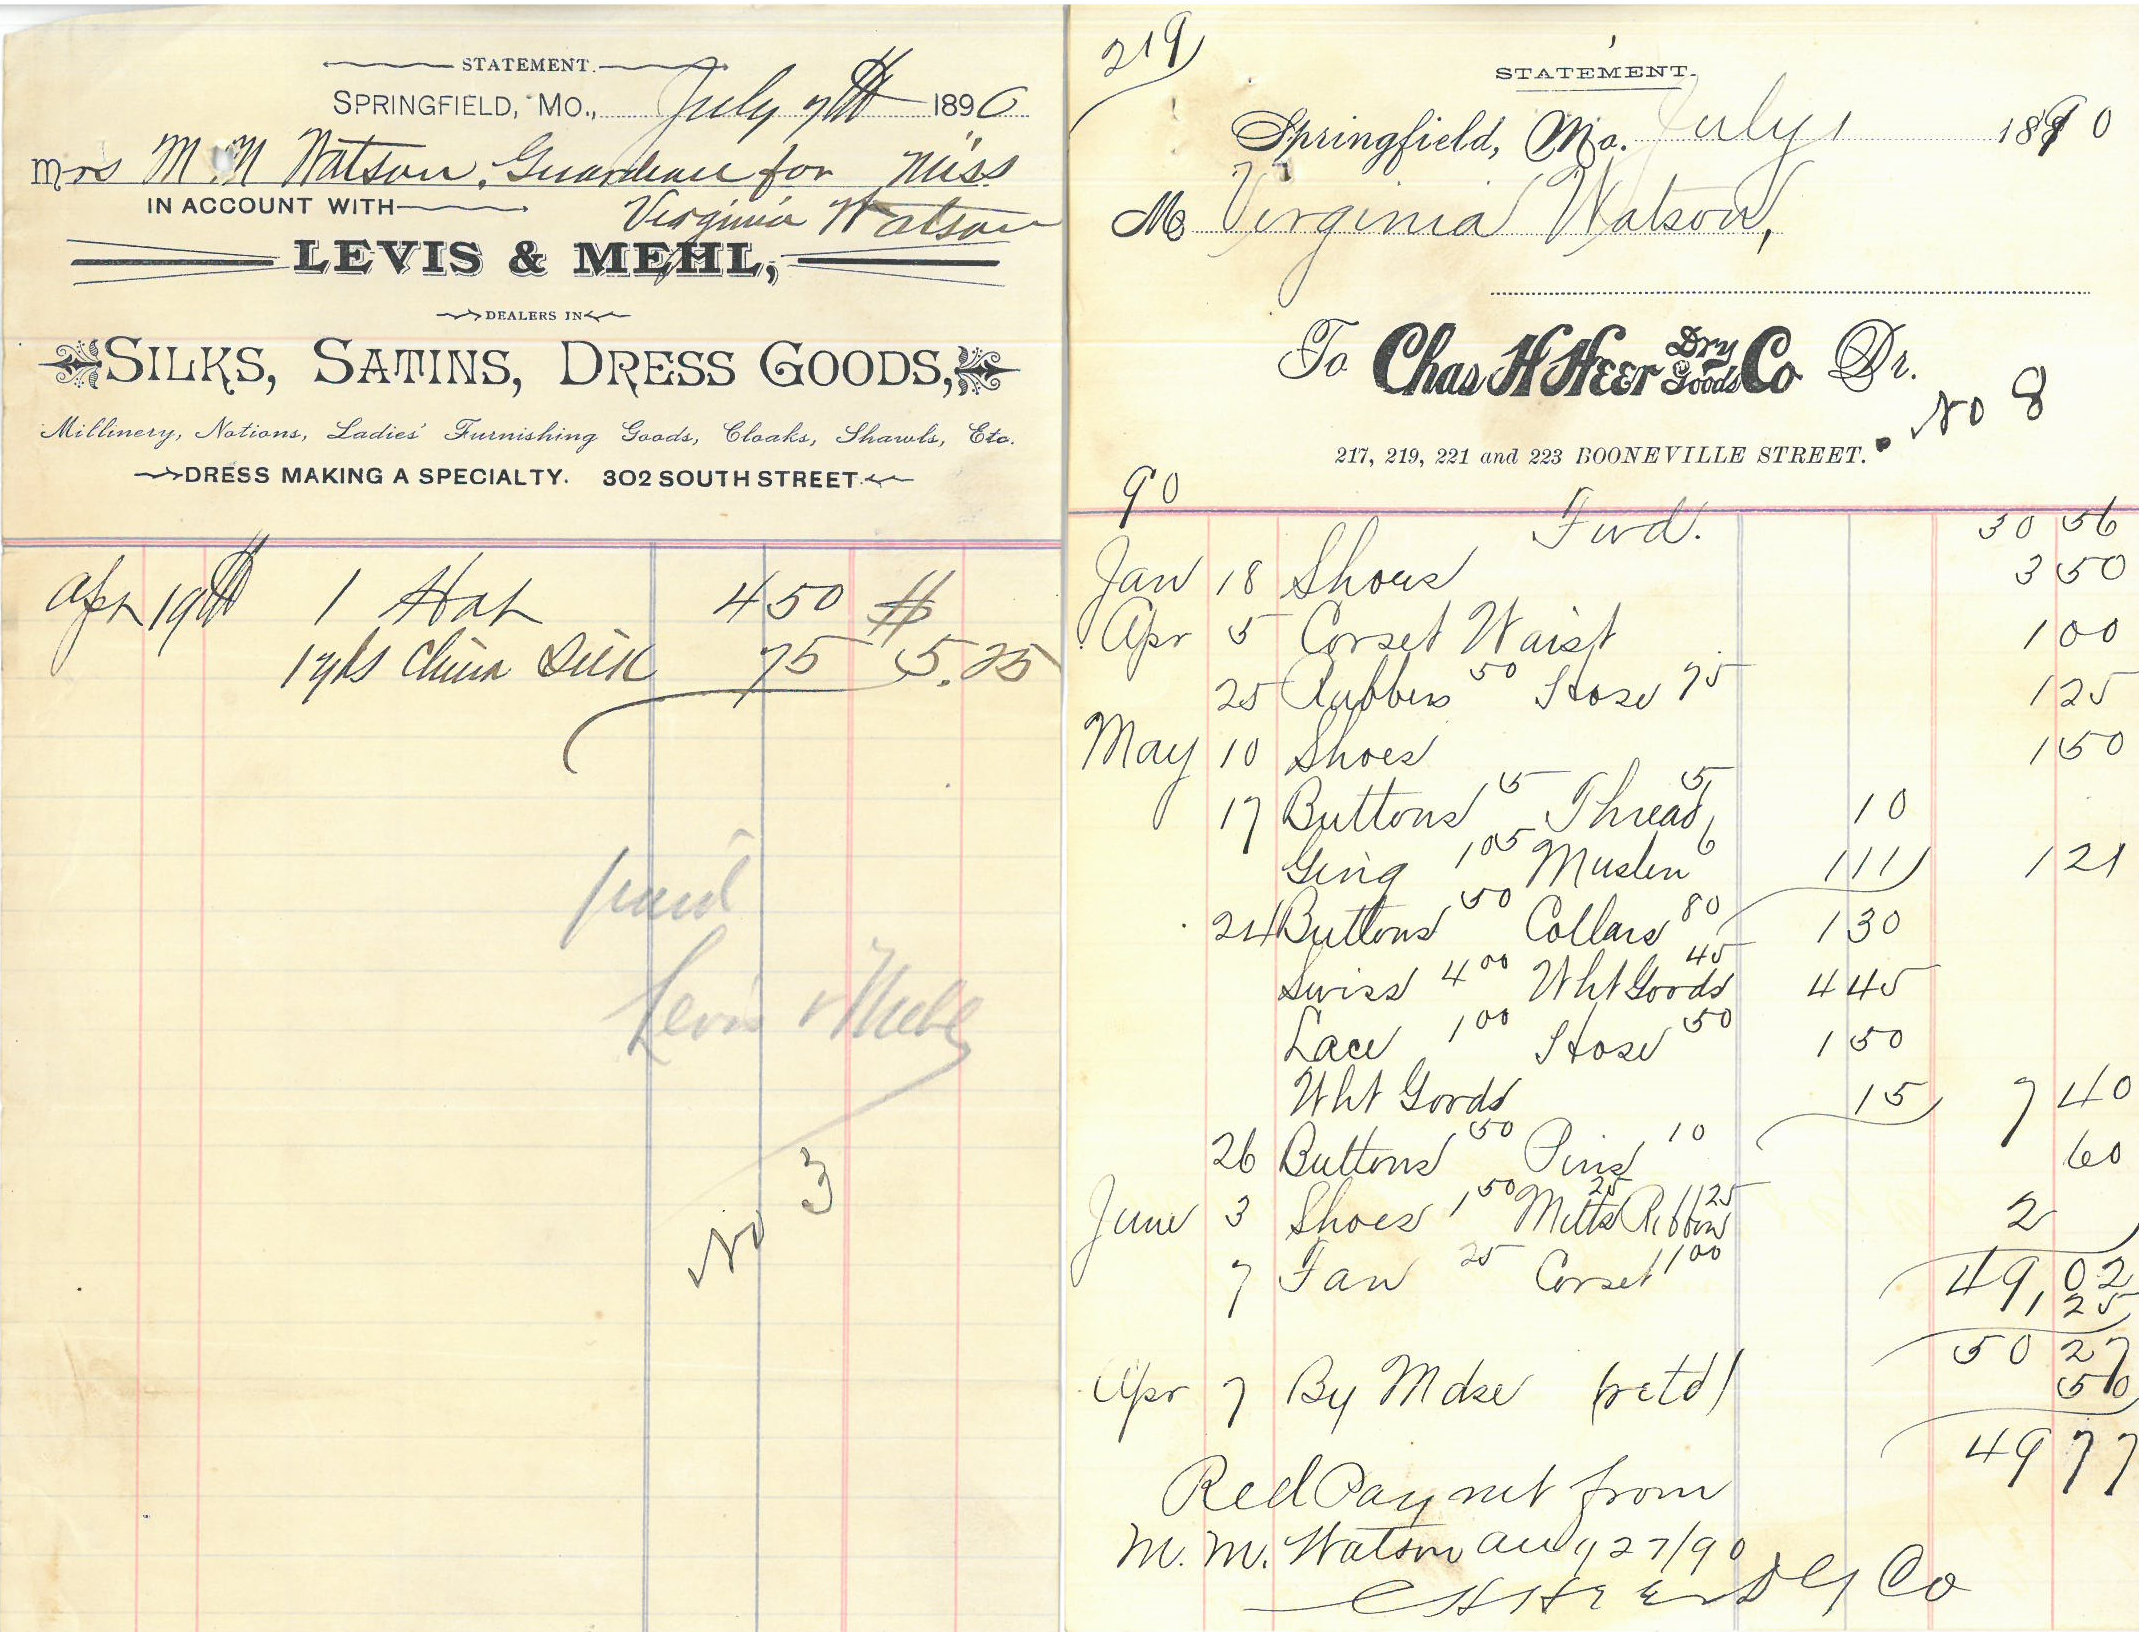 STATEMENT.
SPRINGFIELD, MO., July 7th 1890
Mrs M. M Watson. Guardeane for Miss
IN ACCOUNT WITH Virginia Watson
LEVIS & MEHL,
DEALERS IN
SILKS, SATINS, DRESS GOODS,
Millinery, Notions, Ladies' Furnishing Goods, Cloaks, Shawls, Etc.
DRESS MAKING A SPECIALTY. 302 SOUTH STREET.
Apr 19th 1 Hat 4 50 $
1 yds China Silk 75 5.25
paid
Levis & Mehl
No 3
219
STATEMENT.
Springfield, Mo. July 1 1890
M Virginia Watson,
To Chas H Heer Dry Goods Co Dr.
No 8
217, 219, 221 and 223 BOONEVILLE STREET.
90
Fwd. 30 56
Jan 18 Shoes 3 50
Apr 5 Corset Waist 1 00
25 Rubbers 50 Hose 75 1 25
May 10 Shoes 1 50
17 Buttons 5 Thread 5 10
Ging 1 05 Muslin 6 1 11 1 21
24 Buttons 50 Collars 80 1 30
Swiss 4 00 Wht Goods 45 4 45
Lace 1 00 Hose 50 1 50
Wht Goods 15 7 40
26 Buttons 50 Pins 10 60
June 3 Shoes 1 50 Mitts 25 Ribbon 25 2
49,02
7 Fan 25 Corset 1 00 1 25
50 27
Apr 7 By Mdse (retd) 50
49 77
Recd Payment from
M. M. Watson Aug 27/90
C H Heer D G Co